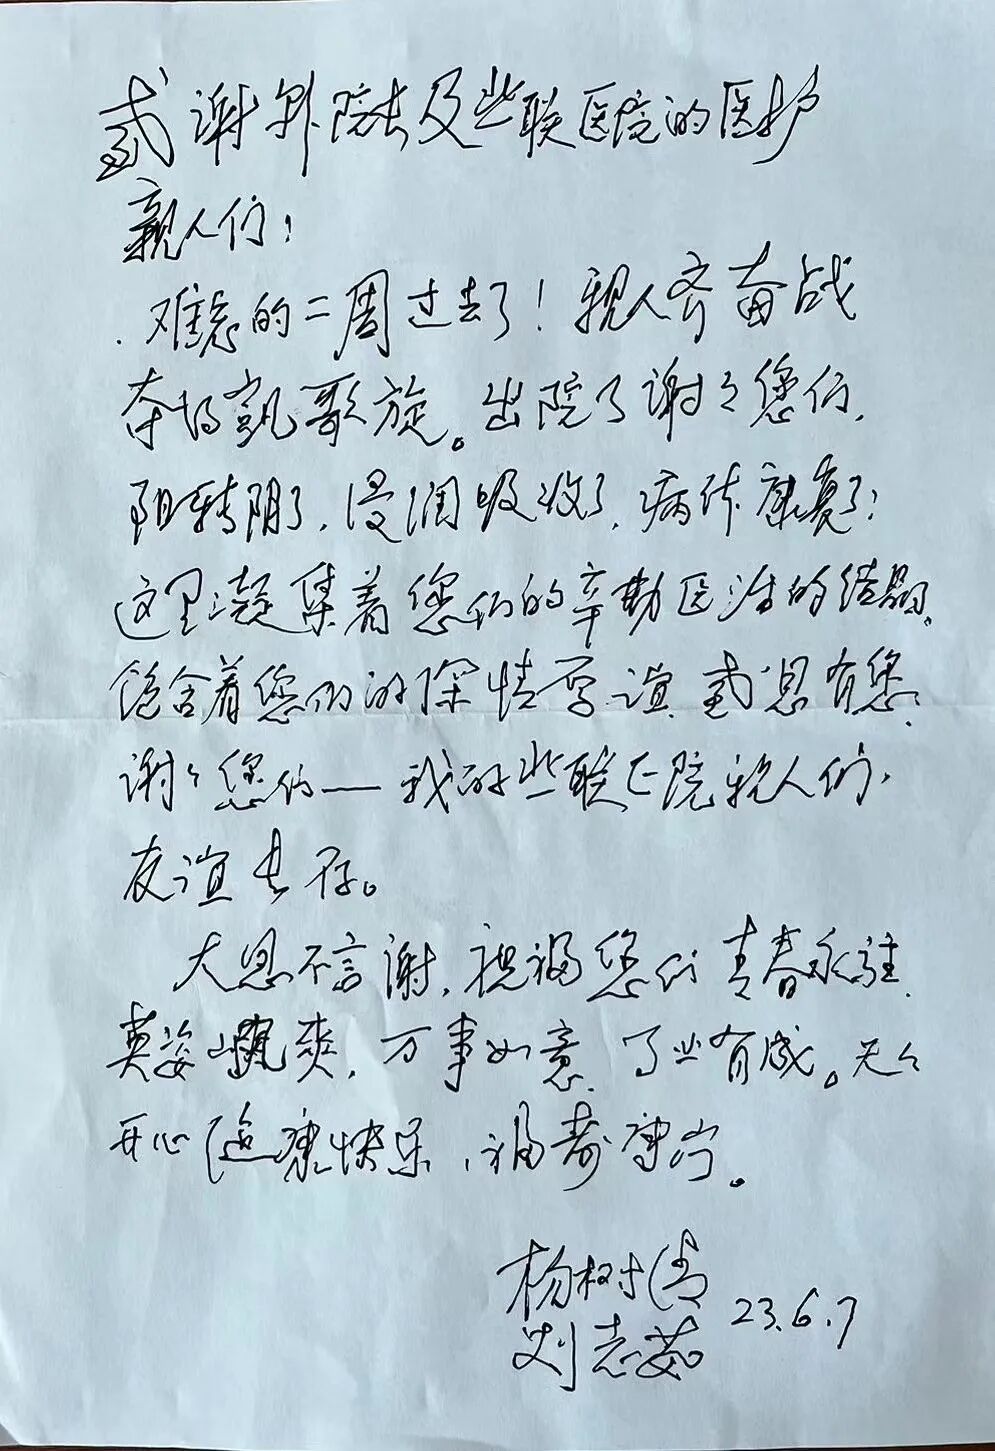 感谢郭院长及些联医院的医护
亲人们！
难忘的二周过去了！亲人齐奋战
夺得凯歌旋。出院了谢々您们，
阳转阴了，浸润吸收了，病体康复了；
这里凝集着您们的辛勤医治的结晶，
饱含着您们的深情厚谊，感恩有您；
谢々您们——我的些联医院亲人们，
友谊长存。
大恩不言谢，祝福您们青春永驻，
英姿飒爽，万事如意，事业有成。天々
开心健康快乐，福寿康宁。
杨树
刘志茹
23.6.7